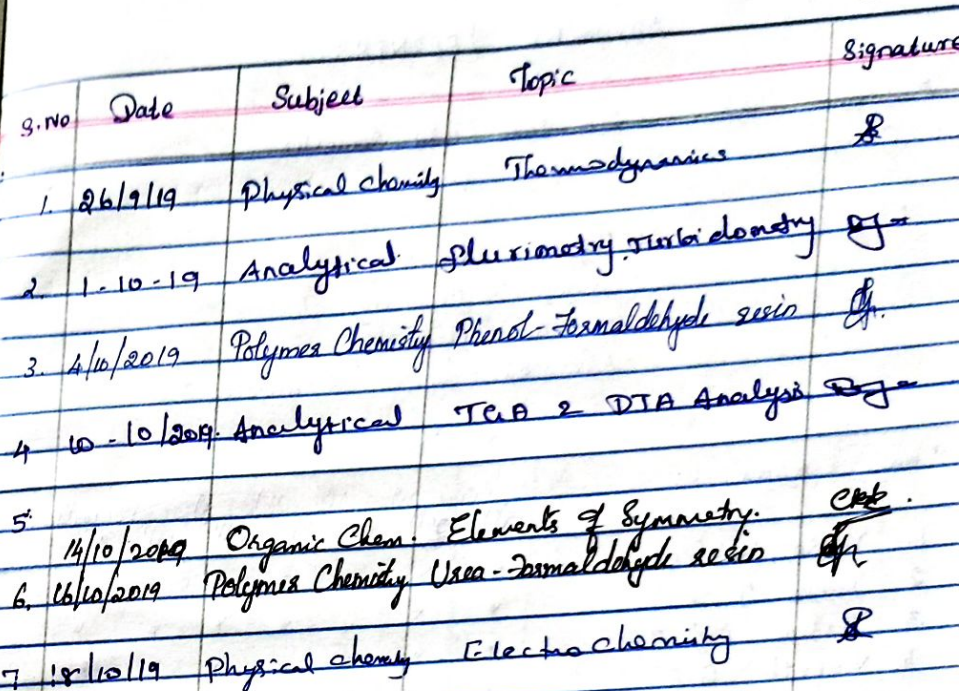 S.No Date Subject Topic Signature
1. 26/9/19 Physical chemisty Thermodynamics
2. 1-10-19 Analytical flurimetry, Turbidometry
3. 4/10/2019 Polymer Chemisty Phenol-Formaldehyde resin
4 10-10/2019. Analytical TGA & DTA Analysis
5. 14/10/2019 Organic Chem. Elements of Symmetry.
6. 16/10/2019 Polymer Chemisty Urea-Formaldehyde resin
7 18/10/19 Physical chemisty Electro chemisty